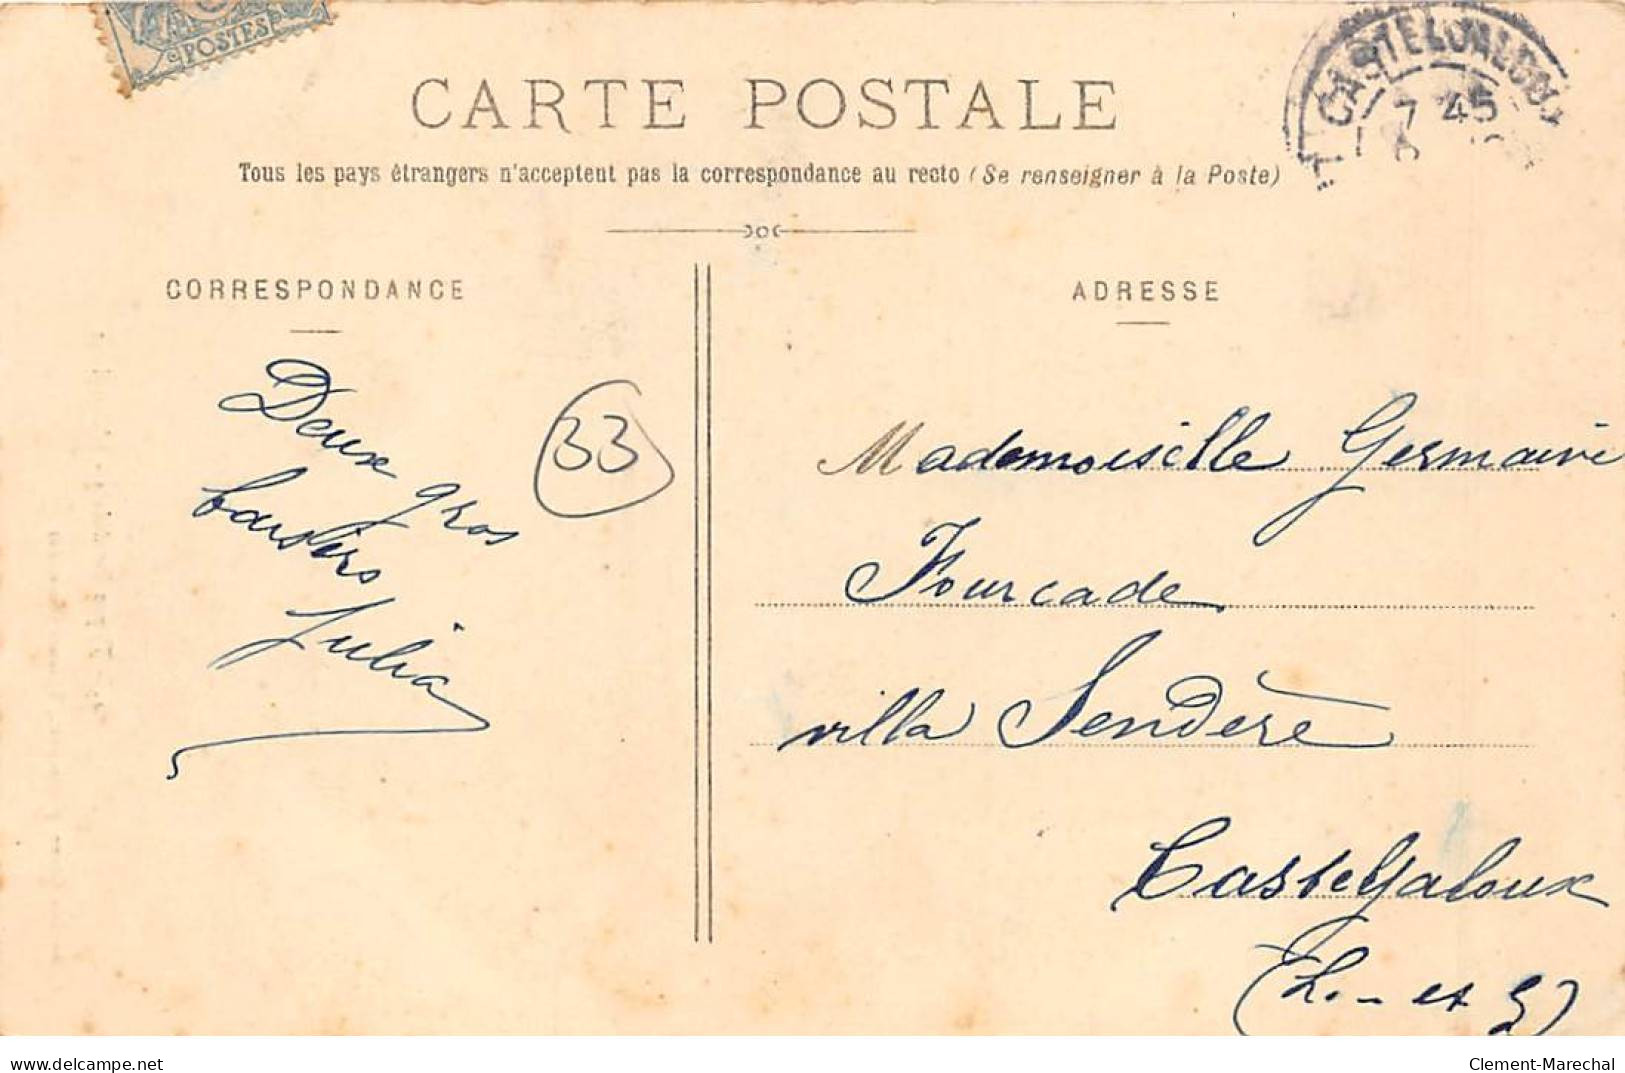 POSTES
CASTELJALOUX
7 45
CARTE POSTALE
Tous les pays étrangers n'acceptent pas la correspondance au recto (Se renseigner à la Poste)
CORRESPONDANCE
ADRESSE
Deux gros
baisers
Julia
33
Mademoiselle Germaine
Fourcade
villa Sendère
Casteljaloux
(L.- et G)
delcampe.net
Clement-Marechal